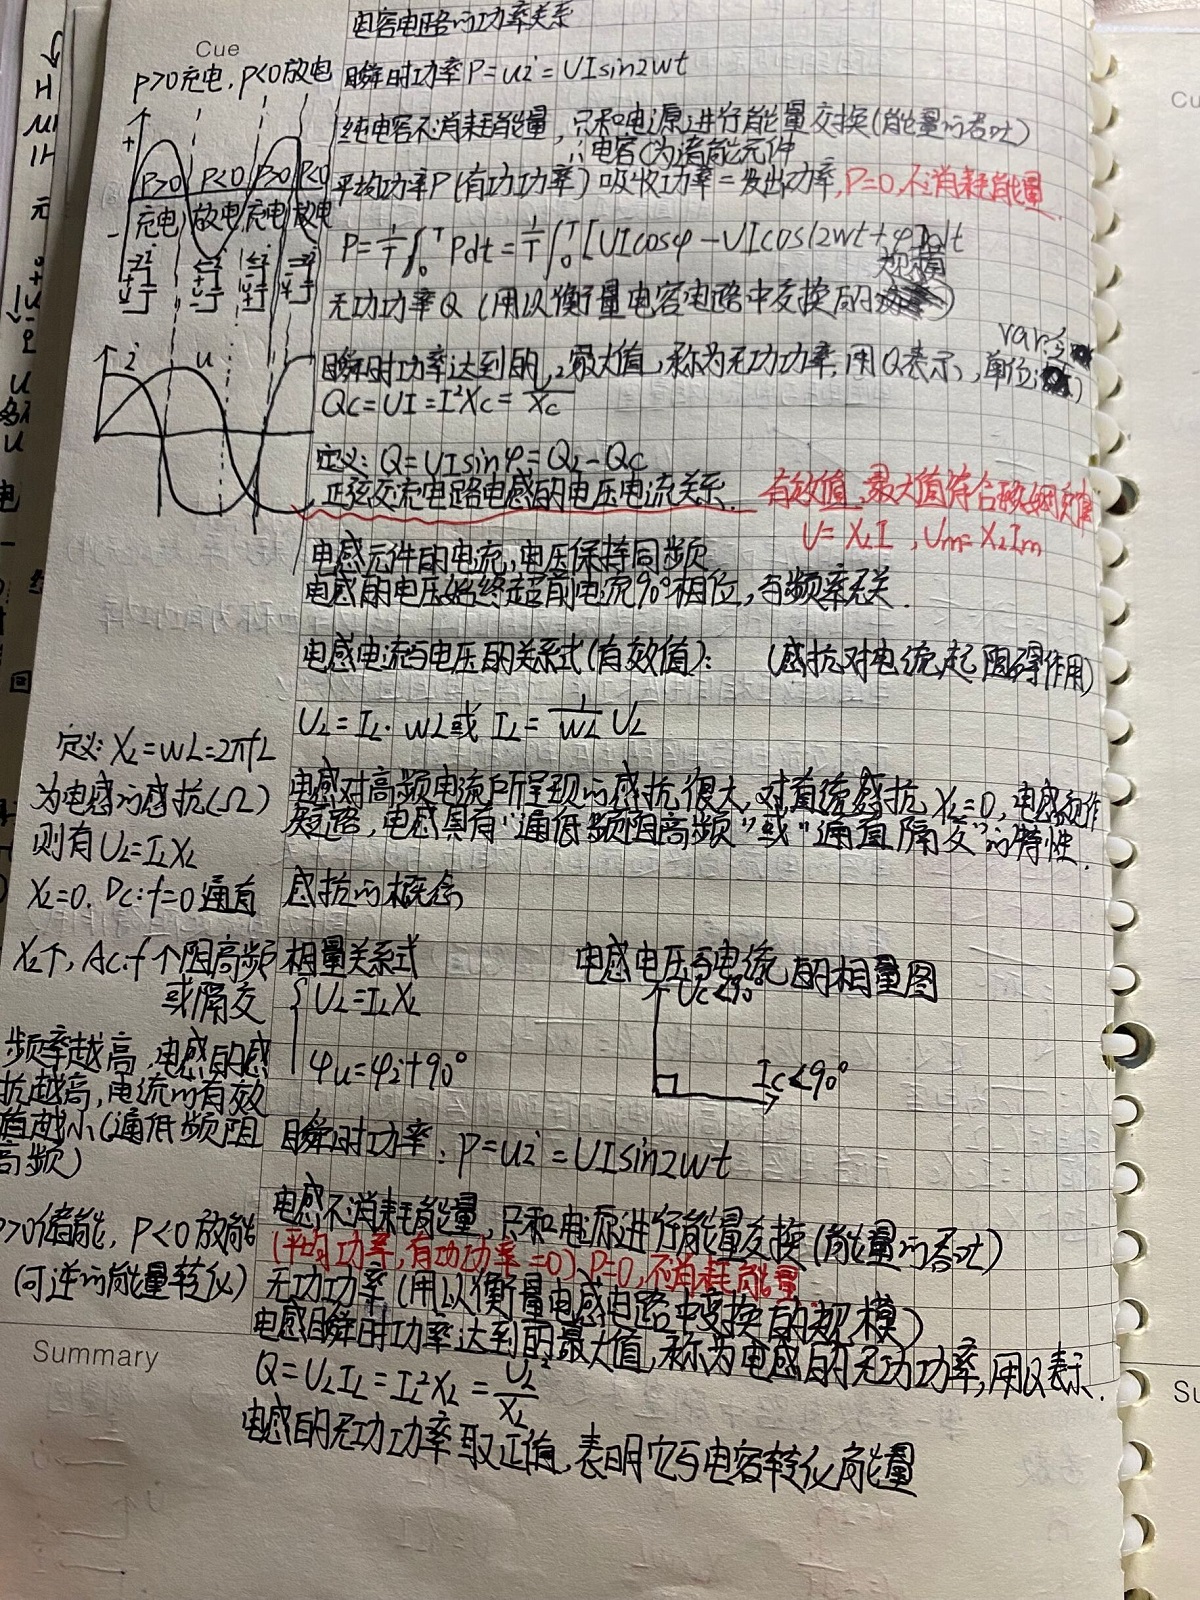 电容电路的功率关系
Cue
P>0充电,P<0放电
瞬时功率P=ui=UIsin2wt
纯电容不消耗能量,只和电源进行能量交换(能量的吞吐)
∴电容C为储能元件
平均功率P(有功功率)吸收功率=发出功率,P=0,不消耗能量
P>0 P<0 P>0 P<0
充电 放电 充电 放电
P=1/T∫₀ᵀPdt=1/T∫₀ᵀ[UIcosφ-UIcos(2wt+φ)]dt
规模
无功功率Q(用以衡量电容电路中交换的)
var乏
i u
瞬时功率达到的最大值,称为无功功率,用Q表示,单位:
Qc=UI=I²Xc=
Xc
定义:Q=UIsinφ=QL-Qc
正弦交流电路电感的电压电流关系.
有效值、最大值符合欧姆定律
U=XLI,Um=XLIm
电感元件的电流,电压保持同频
电感的电压始终超前电流90°相位,与频率无关.
电感电流与电压的关系式(有效值): (感抗对电流起阻碍作用)
UL=IL·wL或IL=1/wL UL
定义:XL=wL=2πfL
为电感的感抗(Ω)
则有UL=ILXL
XL=0.DC:f=0通直
XL↑,AC:f↑阻高频
或隔交
频率越高,电感的感
抗越高,电流的有效
值越小(通低频阻
高频)
电感对高频电流所呈现的感抗很大,对直流感抗XL=0,电感视作
短路,电感具有“通低频阻高频”或“通直隔交”的特性.
感抗的概念
相量关系式
UL=ILXL
φu=φi+90°
电感电压与电流的相量图
Uc<90°
Ic<90°
瞬时功率:P=ui=UIsin2wt
电感不消耗能量,只和电源进行能量交换(能量的吞吐)
(平均功率,有功功率=0)P=0,不消耗能量
P>0储能,P<0放能
(可逆的能量转化)
无功功率(用以衡量电感电路中交换的规模)
电感瞬时功率达到的最大值,称为电感的无功功率,用Q表示.
Q=ULIL=IL²XL=UL²/XL
电感的无功功率取正值,表明它与电容转化能量
Summary